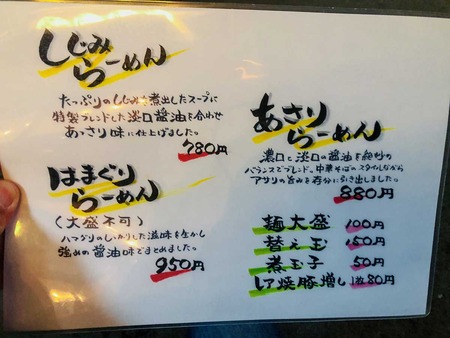 しじみ
らーめん
たっぷりのしじみを煮出したスープに
特製ブレンドした淡口醤油を合わせ
あっさり味に仕上げました。
780円
はまぐり
らーめん
(大盛不可)
ハマグリのしっかりした滋味を生かし
強めの醤油味でまとめました。
950円
あさり
らーめん
濃口と淡口の醤油を絶妙の
バランスでブレンド、中華そばのスタイルながら
アサリの旨みを存分に引き出しました。
880円
麺大盛 100円
替え玉 150円
煮玉子 50円
レア焼豚増し 1枚80円